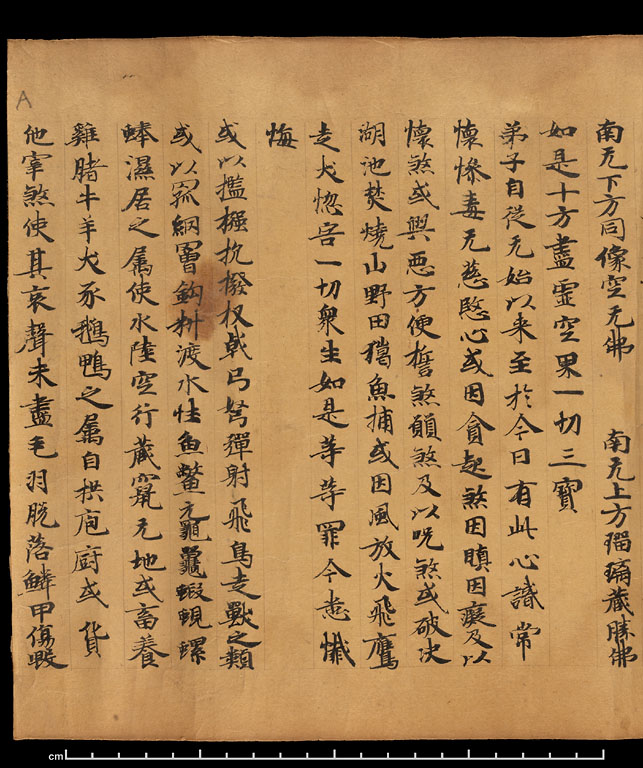 南无下方同像空无佛　南无上方瑠璃藏勝佛
如是十方盡虛空界一切三寶
弟子自從无始以来至於今日有此心識常
懷慘毒无慈愍心或因貪起煞因瞋因癡及以
懷煞或興惡方便誓煞願煞及以呪煞或破决
湖池焚燒山野田獵魚捕或因風放火飛鷹
走犬惚害一切衆生如是等等罪今悉懺
悔
或以檻㯼抗撥杈戟弓弩彈射飛鳥走獸之類
或以罛網罾鈎料渡水性魚鱉元龜鼉蝦蜆螺
蜯濕居之属使水陸空行藏竄无地或畜養
雞腊牛羊犬豕鵝鴨之属自拱庖厨或貨
他宰煞使其哀聲未盡毛羽脱落鱗甲傷毀
A
cm